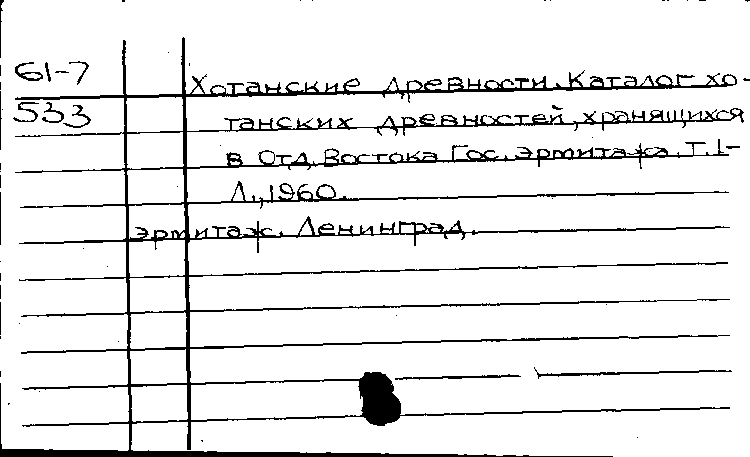 61-7
Хотанские древности. Каталог хо-
533
танских древностей, хранящихся
в Отд. Востока Гос. эрмитажа. Т. 1-
Л., 1960.
эрмитаж. Ленинград.